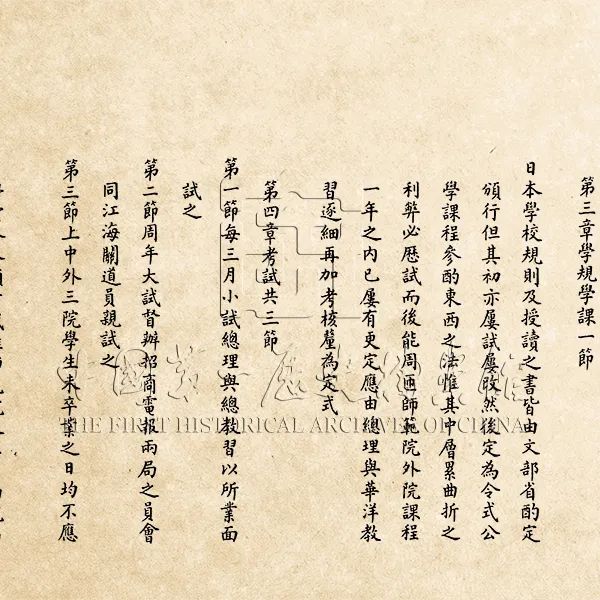 第三章學規學課一節
日本學校規則及授讀之書皆由文部省酌定
頒行但其初亦屢試屢改然後定為令式公
學課程參酌東西之法惟其中層累曲折之
利弊必歷試而後能周匝師範院外院課程
一年之內已屢有更定應由總理與華洋教
習逐細再加考核釐為定式
第四章考試共三節
第一節每三月小試總理與總教習以所業面
試之
第二節周年大試督辦招商電報兩局之員會
同江海關道員親試之
第三節上中外三院學生未卒業之日均不應
中國第一歷史檔案館
THE FIRST HISTORICAL ARCHIVES OF CHINA